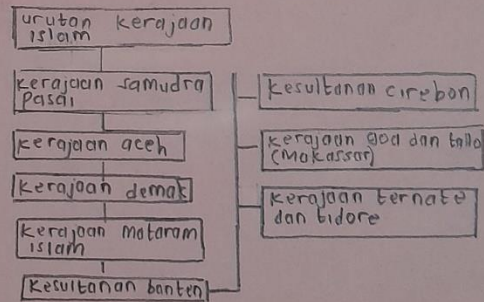 urutan kerajaan
islam
kerajaan samudra
pasai
kerajaan aceh
kerajaan demak
kerajaan mataram
islam
kesultanan banten
kesultanan cirebon
kerajaan goa dan tallo
(makassar)
kerajaan ternate
dan tidore